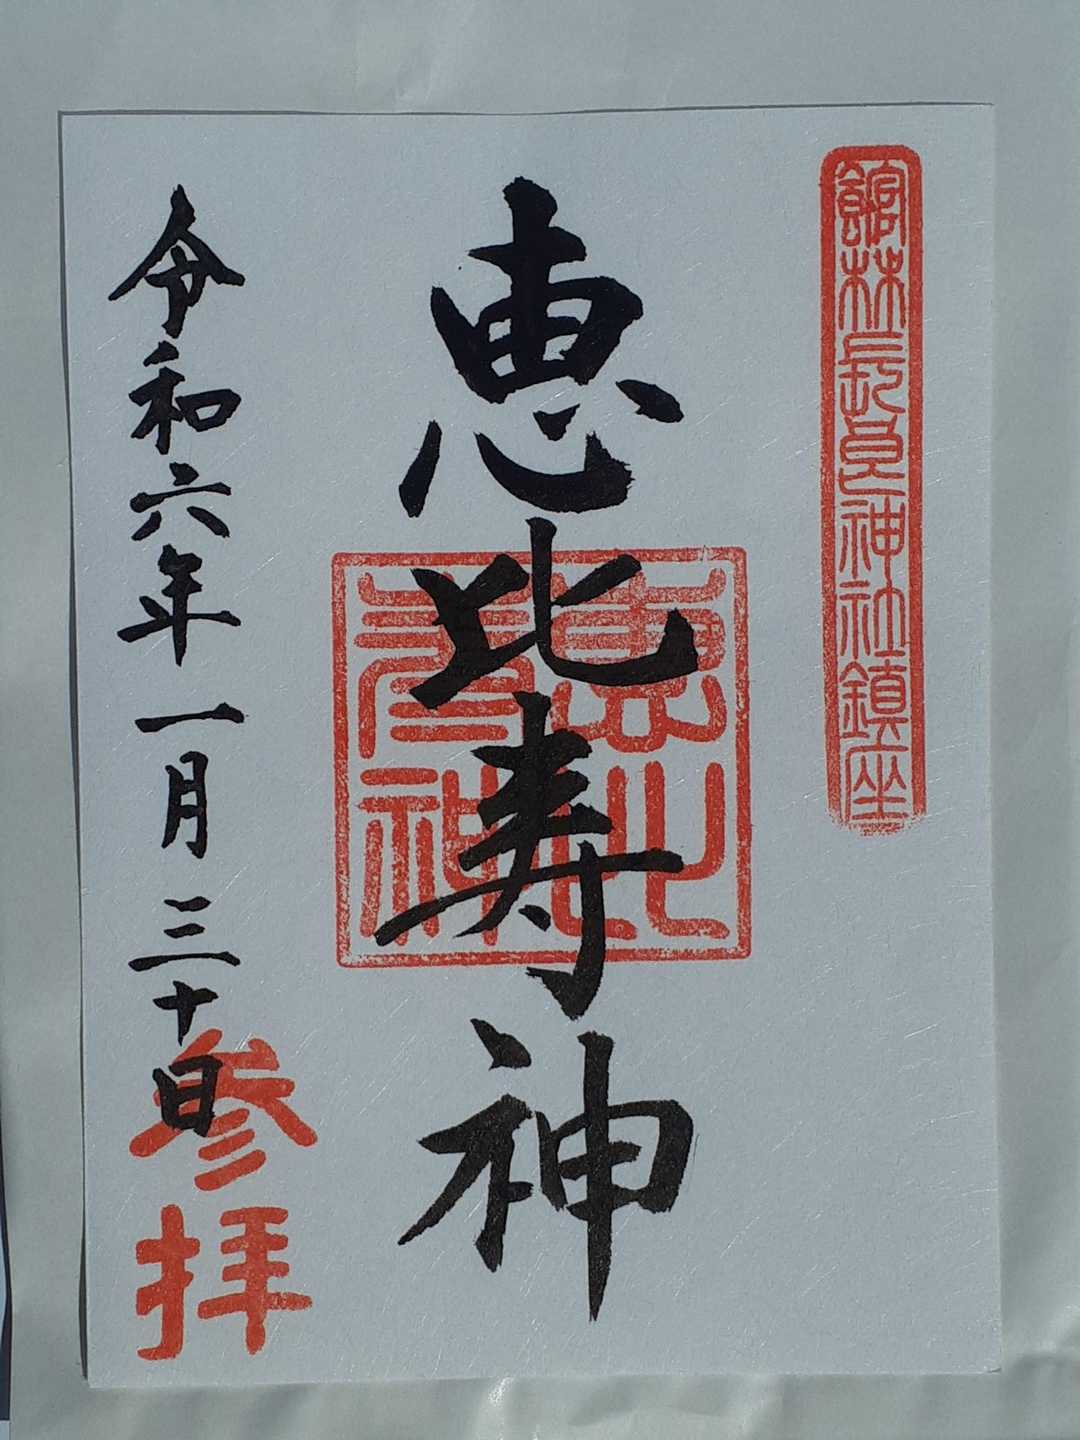 館林長良神社鎮座
恵比寿神
恵比
寿神
令和六年一月三十日
参拝